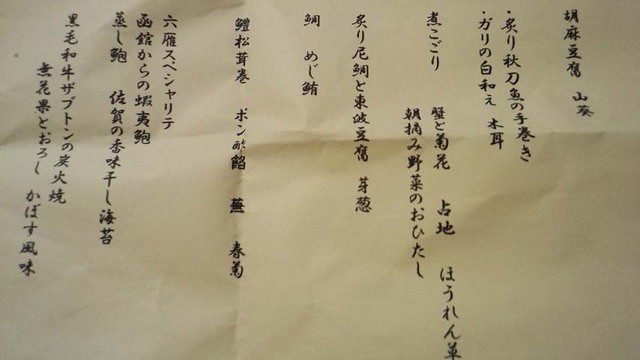 胡麻豆腐 山葵
・炙り秋刀魚の手巻き
・ガリの白和え 木耳
煮こごり 蟹と菊花 占地 ほうれん草
朝摘み野菜のおひたし
炙り尼鯛と東波豆腐 芽葱
鯛 めじ鮪
鱧松茸巻 ポン酢餡 蕪 春菊
六雁スペシャリテ
函館からの蝦夷鮑
蒸し鮑 佐賀の香味干し海苔
黒毛和牛ザブトンの炭火焼
無花果とおろし かぼす風味